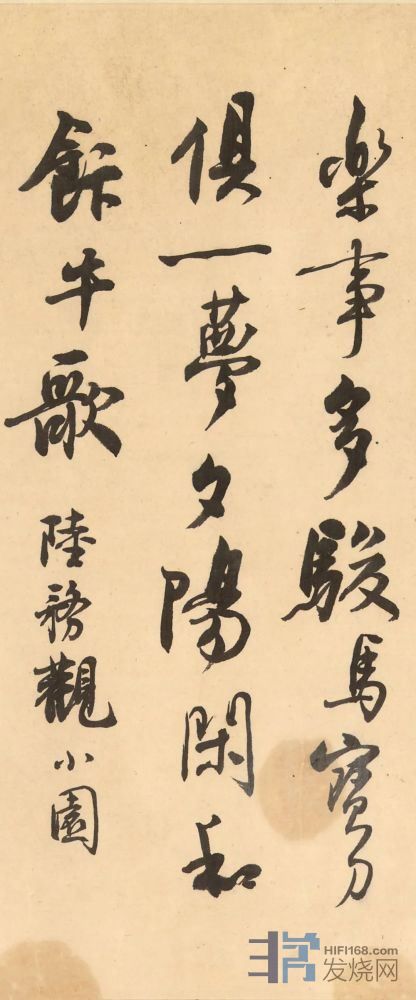 樂事多駿馬寶刀
俱一夢夕陽閑和
飰牛歌 陸務觀小園
HIFI168.com
发烧网